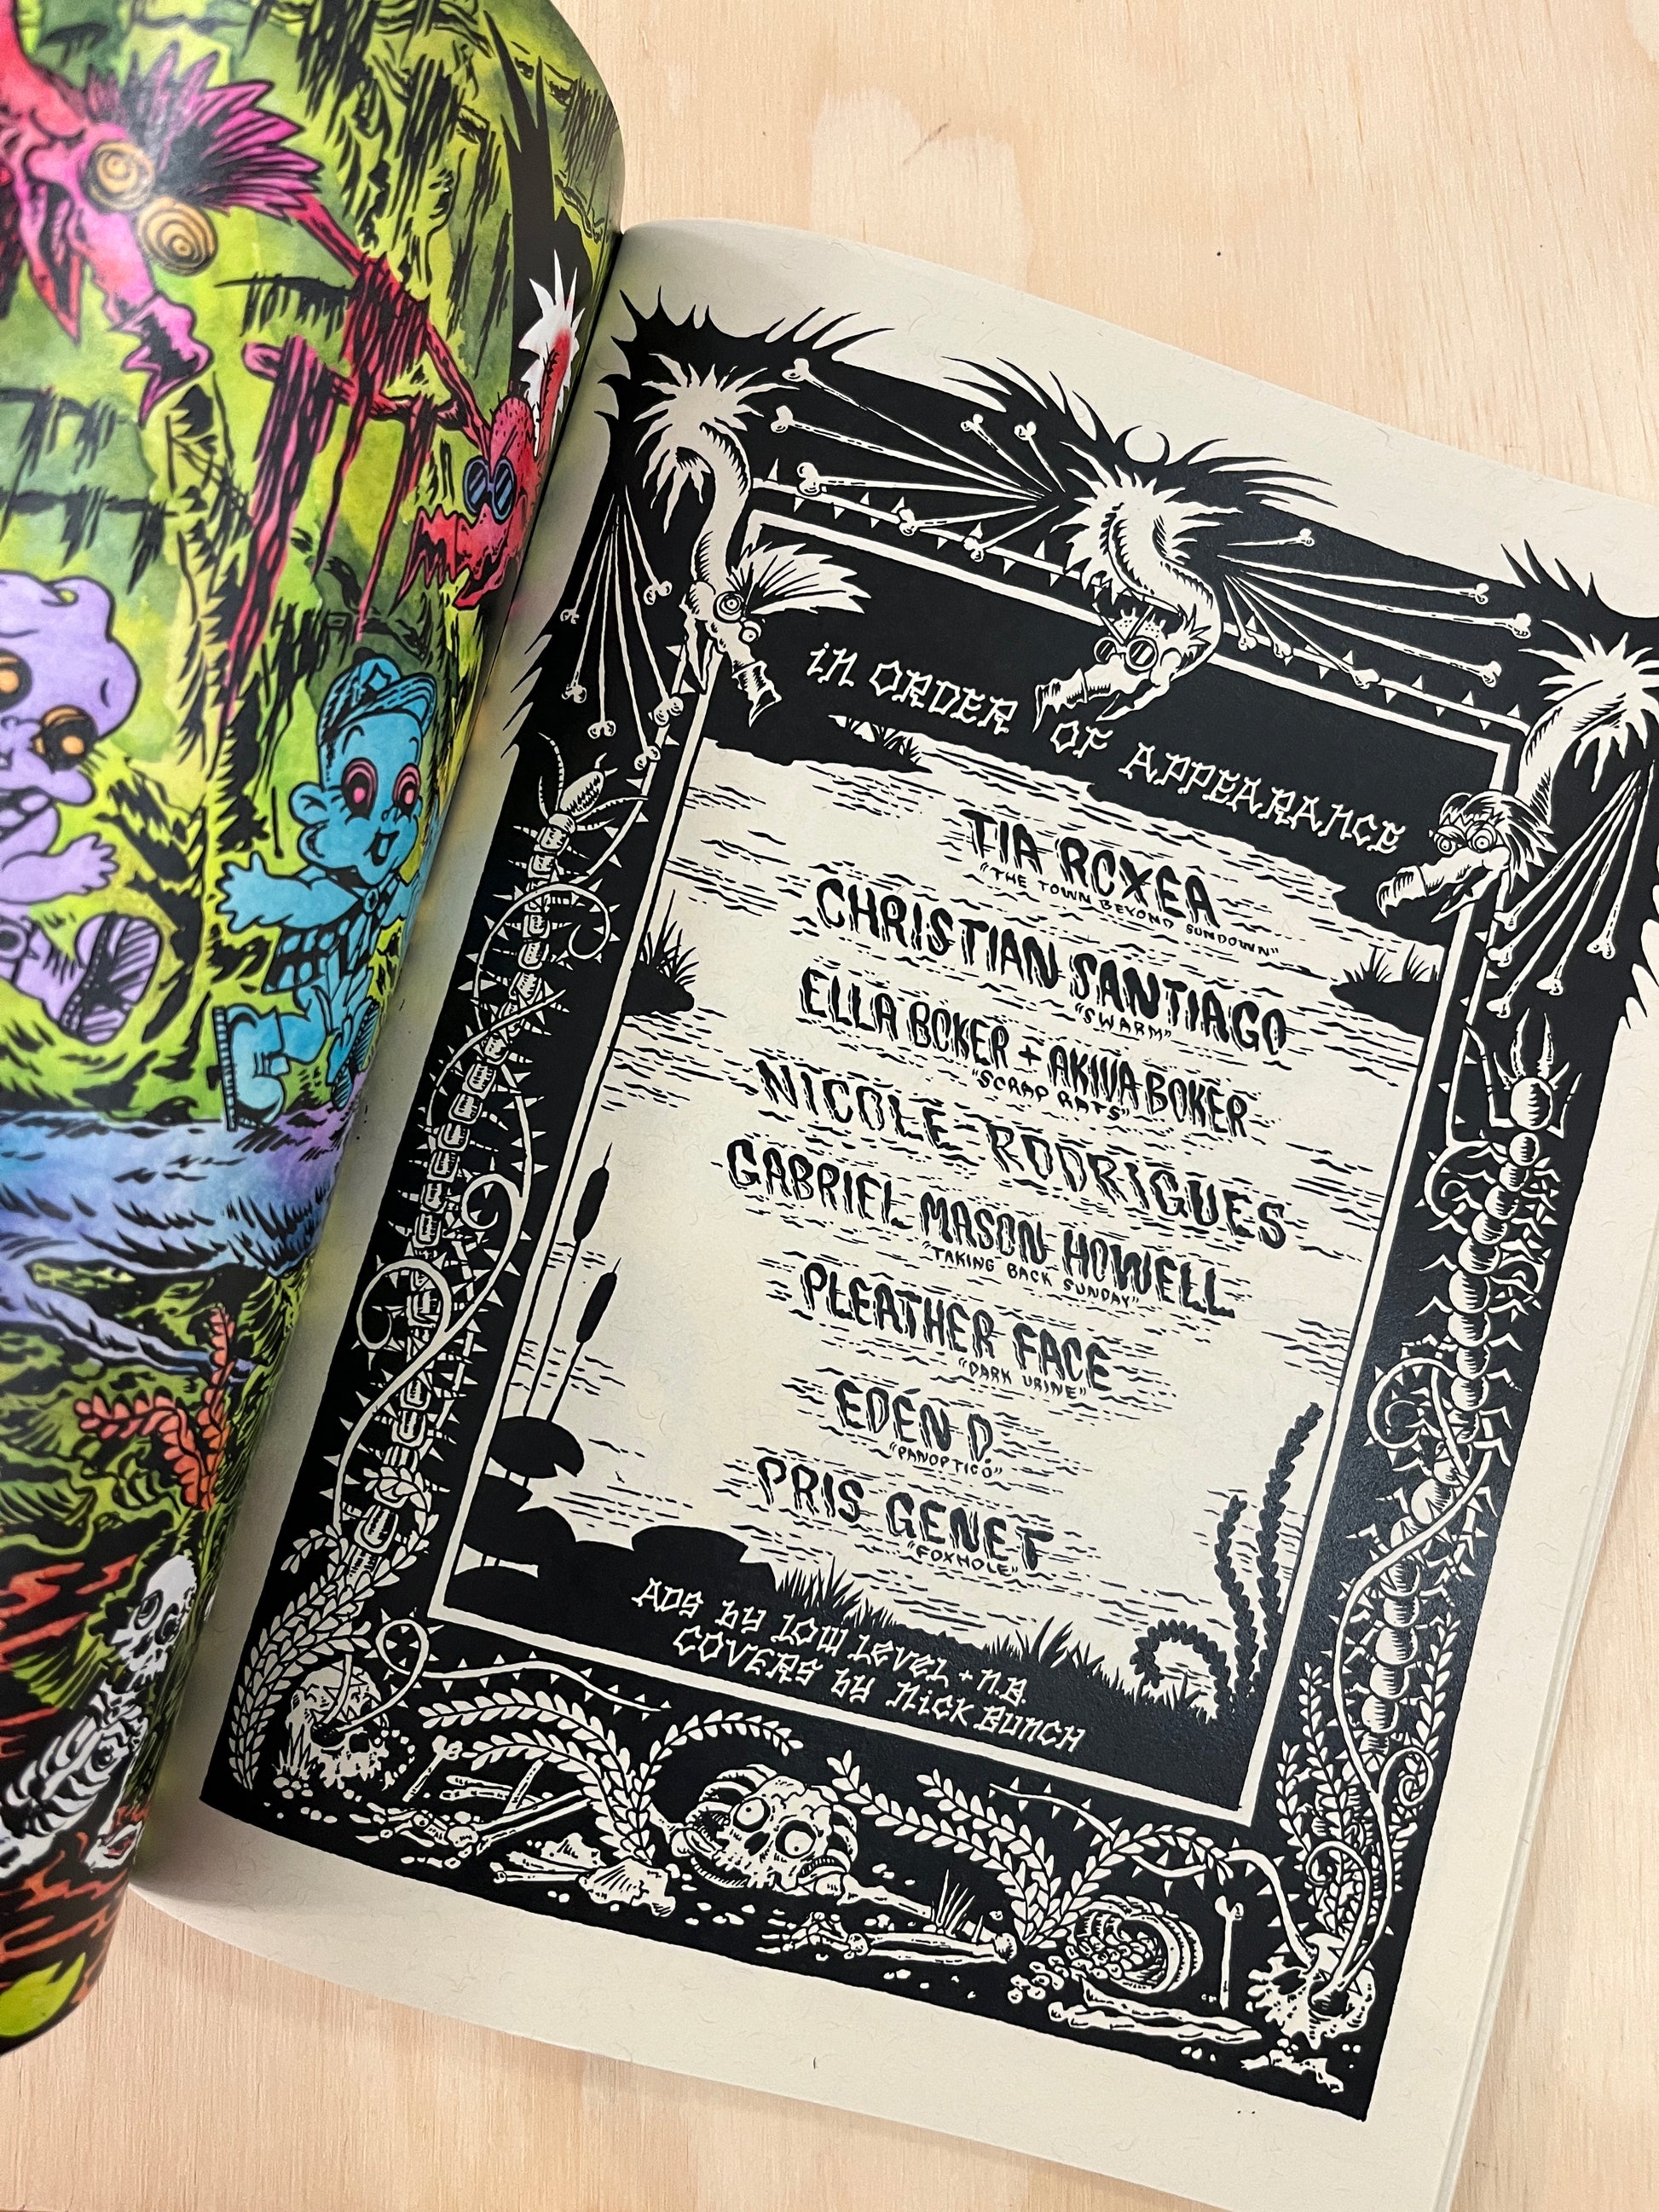 in ORDER OF APPEARANCE
TIA ROXEA
"THE TOWN BEYOND SUNDOWN"
CHRISTIAN SANTIAGO
"SWARM"
ELLA BOKER + AKIVA BOKER
"SCRAP RATS"
NICOLE RODRIGUES
GABRIEL MASON HOWELL
"TAKING BACK SUNDAY"
PLEATHER FACE
"DARK URINE"
EDÉN D.
"PANOPTICO"
PRIS GENET
"FOXHOLE"
ADS by LOW LEVEL + N.B.
COVERS by NiCK BUNCH